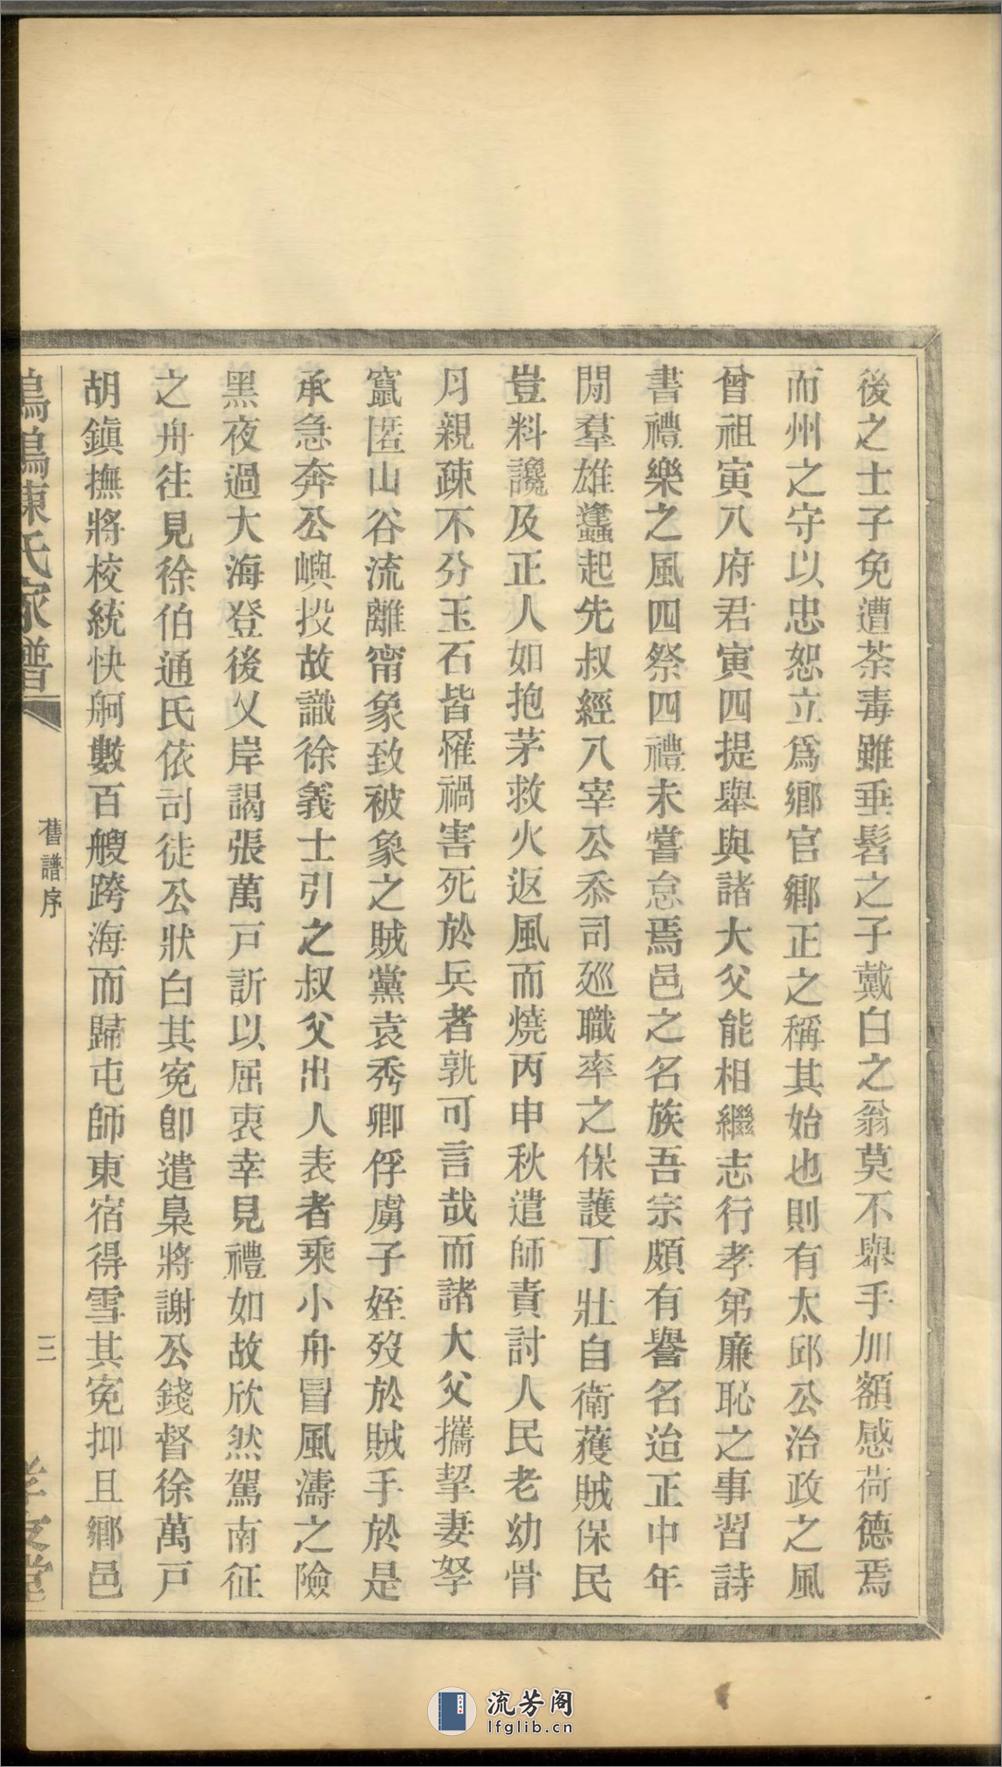 後之士子免遭荼毒雖垂髫之子戴白之翁莫不舉手加額感荷德焉
而州之守以忠恕立爲鄕官鄕正之稱其始也則有太邱公治政之風
曾祖寅八府君寅四提舉與諸大父能相繼志行孝弟廉恥之事習詩
書禮樂之風四祭四禮未嘗怠焉邑之名族吾宗頗有譽名迨正中年
閒羣雄蠭起先叔經八宰公忝司廵職率之保護丁壯自衛蔑賊保民
豈料讒及正人如抱茅救火返風而燒丙申秋遣師責討人民老幼骨
月親疎不分玉石皆罹禍害死於兵者孰可言哉而諸大父攜挈妻孥
竄匿山谷流離甯象致被象之賊黨袁秀卿俘虜子姪歿於賊手於是
承急奔公嶼投故識徐義士引之叔父出人表者乘小舟冒風濤之險
黑夜過大海登後乂岸謁張萬戸訢以屈衷幸見禮如故欣然駕南征
之舟往見徐伯通氏依司徒公狀白其寃卽遣梟將謝公錢督徐萬戸
胡鎭撫將校統快舸數百艘跨海而歸屯師東宿得雪其寃抑且鄕邑
陳氏家譜
舊譜序
三
流芳阁
lfglib.cn